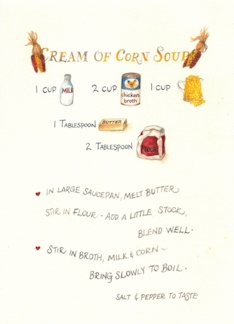 CREAM OF CORN SOUP
1 CUP MILK 2 CUP chicken broth 1 CUP
1 TABLESPOON BUTTER
2 TABLESPOON
IN LARGE SAUCEPAN, MELT BUTTER
STIR IN FLOUR. ADD A LITTLE STOCK,
BLEND WELL.
STIR IN BROTH, MILK & CORN ~
BRING SLOWLY TO BOIL.
SALT & PEPPER TO TASTE